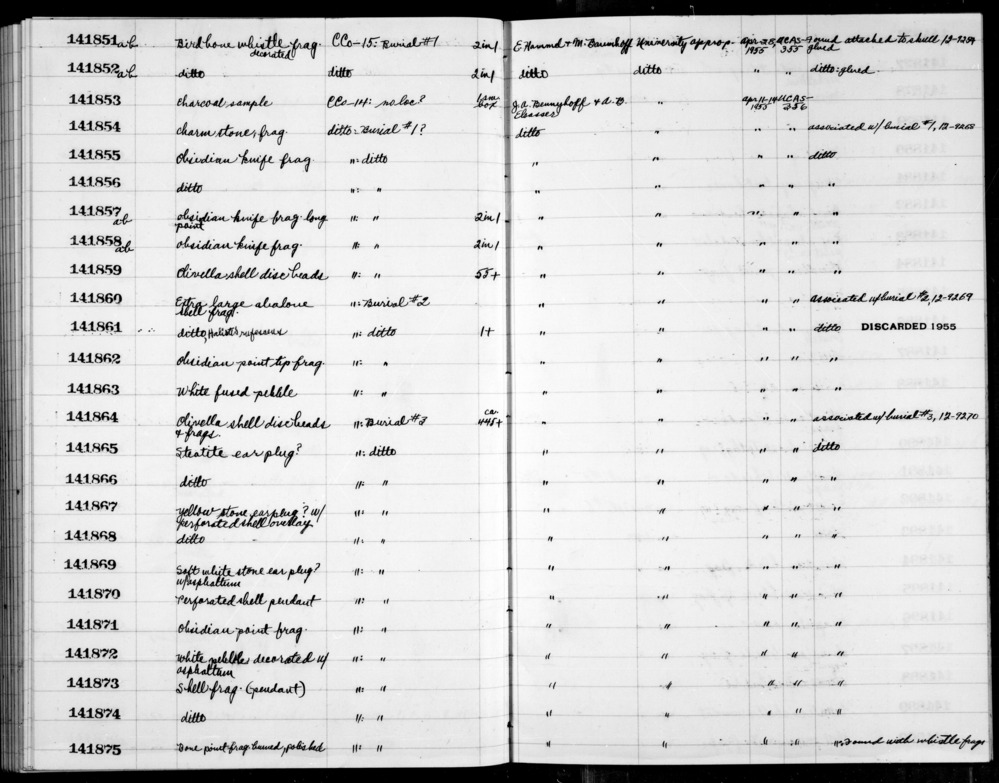 141851 a-b Birdbone whistle frag. decorated CCo-15: Burial #1 2 in 1 University approp. 1955 355 attached to skull, 12-9254
141852 a-b ditto ditto 2 in 1 ditto ditto " " ditto: glued
141853 charcoal sample CCo-14: no loc? J.A. Bennyhoff & A.B. Elsasser " Apr 11-14 1955 UCAS-356
141854 charm stone, frag. ditto: Burial #1? ditto " " " associated w/ burial #1, 12-9268
141855 Obsidian knife frag. ": ditto " " " " ditto
141856 ditto ": " " " " " "
141857 a-b obsidian knife frag. long point ": " 2 in 1 " " " " "
141858 a-b obsidian knife frag. ": " 2 in 1 " " " " "
141859 Olivella shell disc beads ": " 55+ " " " " "
141860 Extra large abalone shell frag. ": Burial #2 " " " " associated w/ burial #2, 12-9269
141861 ditto, Haliotis rufescens ": ditto 1+ " " " " ditto DISCARDED 1955
141862 Obsidian point tip frag. ": " " " " " "
141863 White fused pebble ": " " " " " "
141864 Olivella shell disc beads & frags. ": Burial #3 ca. 445+ " " " " associated w/ burial #3, 12-9270
141865 Steatite ear plug? ": ditto " " " " ditto
141866 ditto ": " " " " " "
141867 Yellow stone earplug? w/ perforated shell overlay ": " " " " " "
141868 ditto ": " " " " " "
141869 Soft white stone ear plug? w/asphaltum ": " " " " " "
141870 Perforated shell pendant ": " " " " " "
141871 Obsidian point frag. ": " " " " " "
141872 White pebble decorated w/ asphaltum ": " " " " " "
141873 Shell frag. (pendant) ": " " " " " "
141874 ditto ": " " " " " "
141875 Bone point frag. burned, polished ": " " " " " ": Found with whistle frags